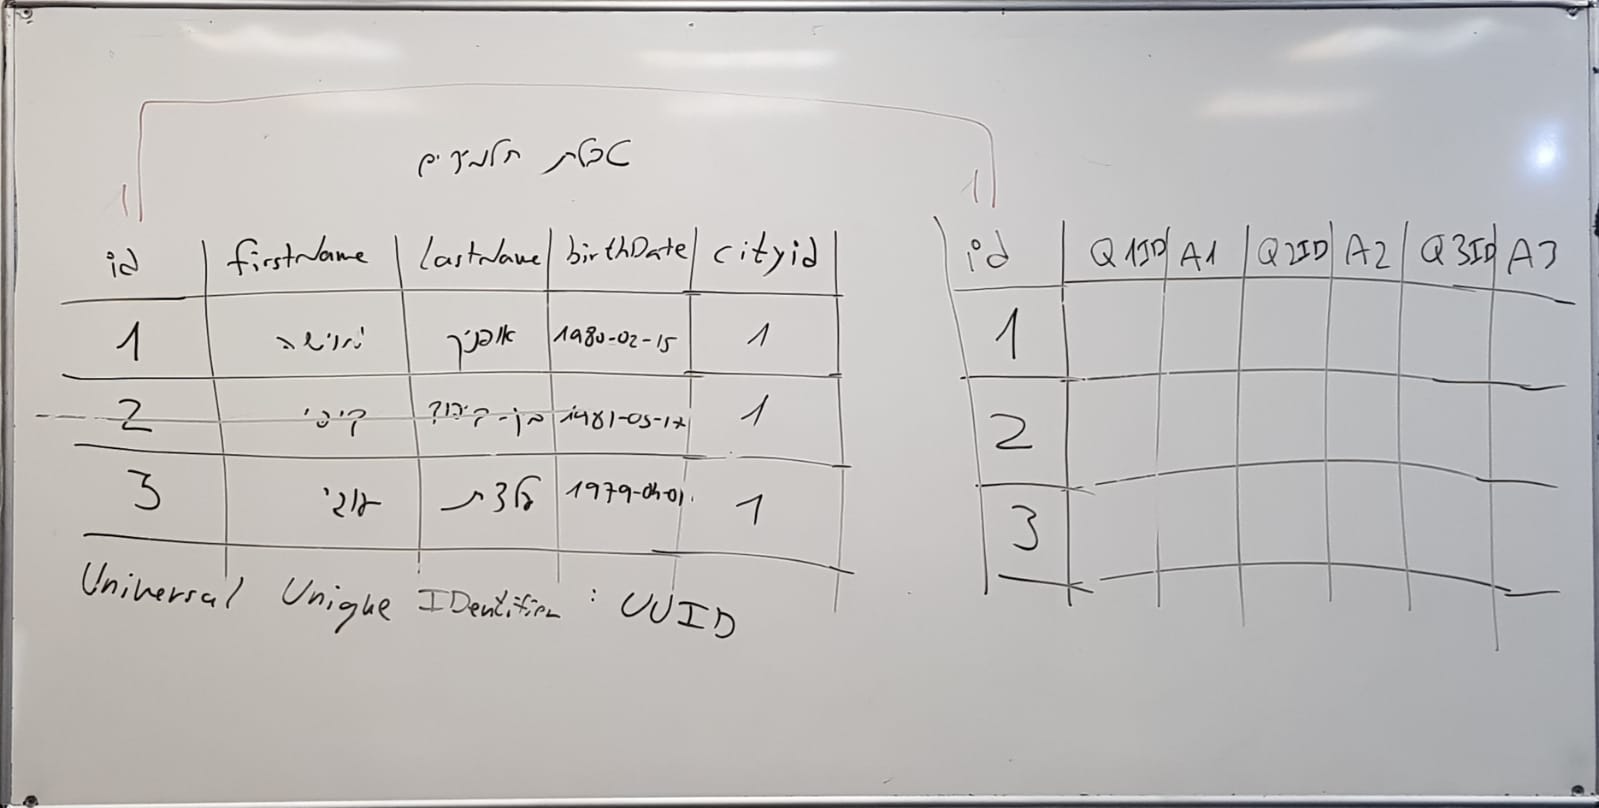 טבלת תלמידים
1 1
id firstName lastName birthDate cityid
1 1980-02-15 1
2 1981-05-17 1
3 1979-04-01 1
Universal Unique IDentifier : UUID
id Q1ID A1 Q2ID A2 Q3ID A3
1
2
3